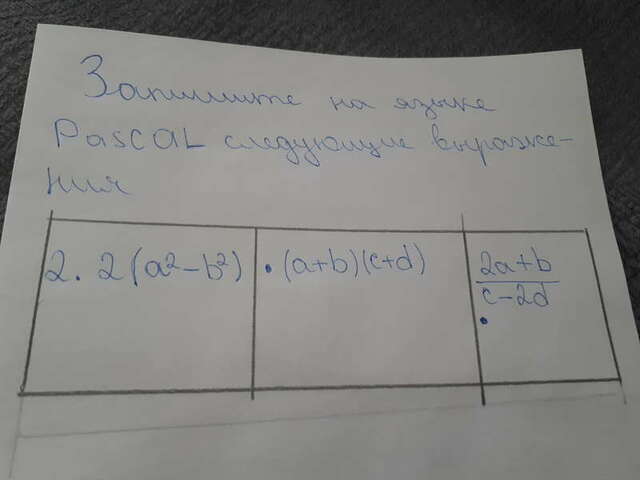 Запишите на языке
Pascal следующие выраже-
ния
2. 2(a²-b²)
• (a+b)(c+d)
2a+b
c-2d
•